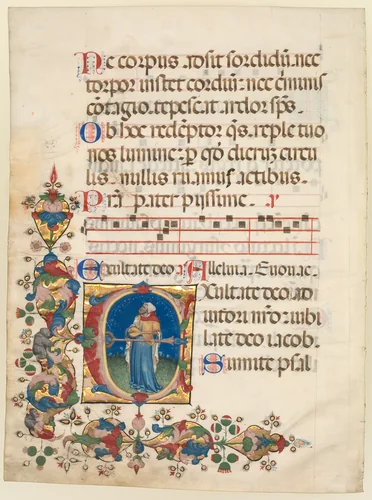 Ne corpus adsit sordidū: nec
torpor instet cordiū: nec criminis
cōtagio tepescat ardor sp̄s.
Ob hoc redēptor q̄s reple tuo
nos lumine: p̄ q̄d dierū circu
lis nullis ruamus actibus.
P̄ra pater pijssime
Exultate deo Alleluia. Euouae.
Exultate deo ad
iutori nr̄o: iubi
late deo iacob.
Sumite psal